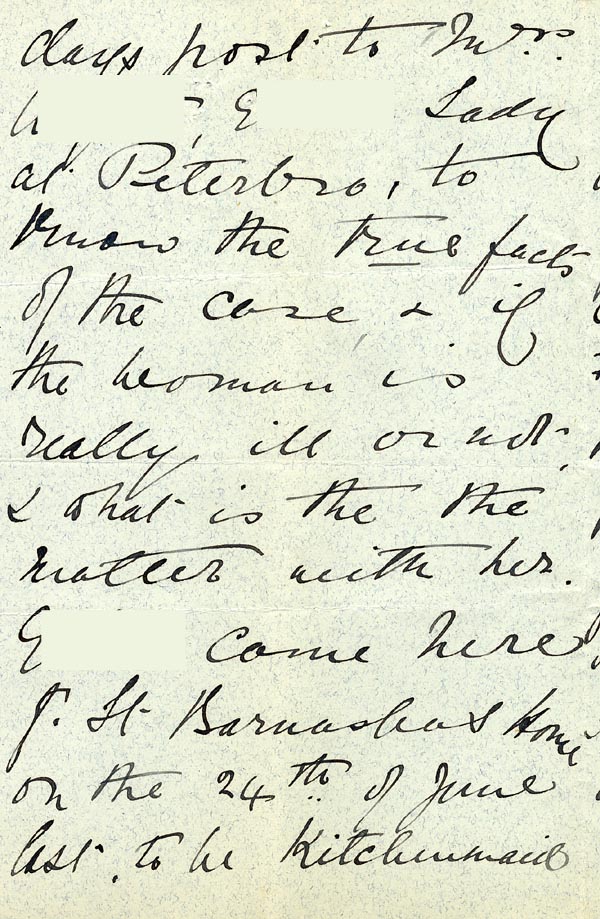 days post to Mrs.
Lady
at Peterbro, to
know the true facts
of the case & if
the woman is
really ill or not,
& what is the the
matter with her.
E come here
f. St Barnasbas Home
on the 24th of June
last. to be Kitchenmaid